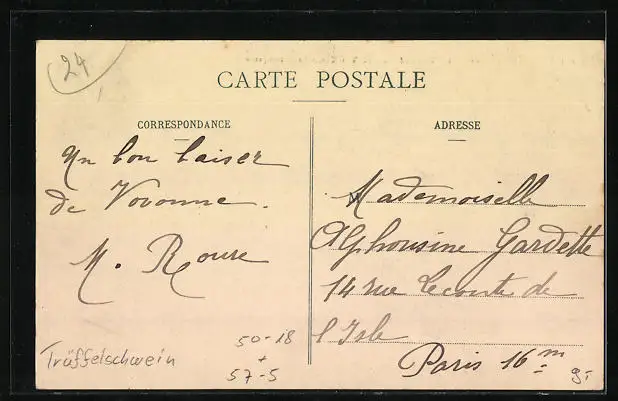 24
CARTE POSTALE
CORRESPONDANCE
Un bon baiser
de Vovonne.
M. Roure
ADRESSE
Mademoiselle
Alphonsine Gardette
14 rue Leconte de
l'Isle
Paris 16me
Trüffelschwein
50-18
+
57-5
9,-